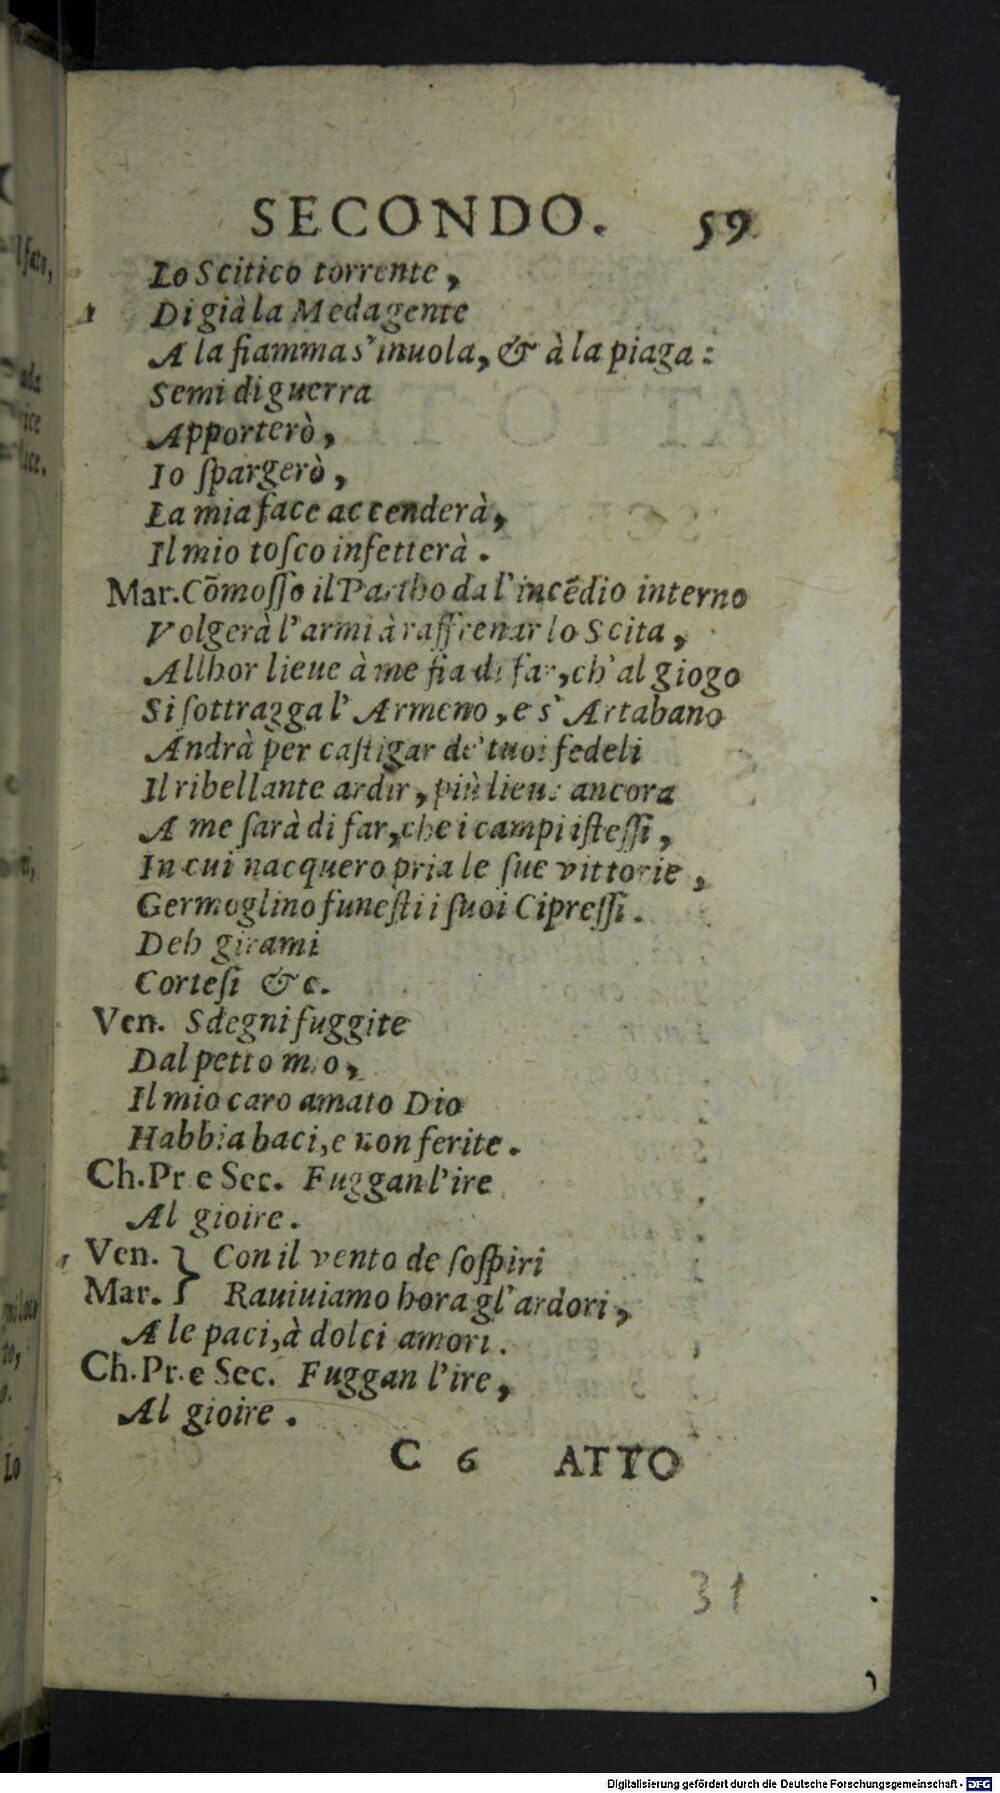 SECONDO. 59
Lo Scitico torrente,
Di già la Meda gente
A la fiamma s'inuola, & à la piaga:
Semi di guerra
Apporterò,
Io ſpargerò,
La mia face accenderà,
Il mio toſco infetterà.
Mar. Cōmoſſo il Partho da l'incēdio interno
Volgerà l'armi à raffrenar lo Scita,
Allhor lieue à me fia di far, ch'al giogo
Si ſottragga l'Armeno, e s'Artabano
Andrà per caſtigar de' tuoi fedeli
Il ribellante ardir, più lieue ancora
A me ſarà di far, che i campi iſteſſi,
In cui nacquero pria le ſue vittorie,
Germoglino funeſti i ſuoi Cipreſſi.
Deh girami
Corteſi &c.
Ven. Sdegni fuggite
Dal petto mio,
Il mio caro amato Dio
Habbia baci, e non ferite.
Ch. Pr e Sec. Fuggan l'ire
Al gioire.
Ven. } Con il vento de ſoſpiri
Mar. } Rauiuiamo hora gl'ardori,
A le paci, à dolci amori.
Ch. Pr. e Sec. Fuggan l'ire,
Al gioire.
C 6 ATTO
31
Digitalisierung gefördert durch die Deutsche Forschungsgemeinschaft - DFG